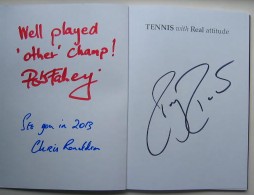 Well played
'other' champ!
Rob Fahey
See you in 2013
Chris Ronaldson
TENNIS with Real attitude